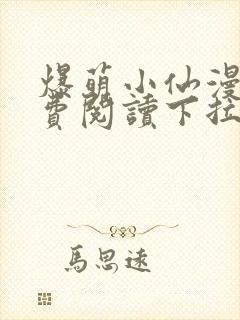 爆萌小仙漫
費閱讀下拉
馬思遠